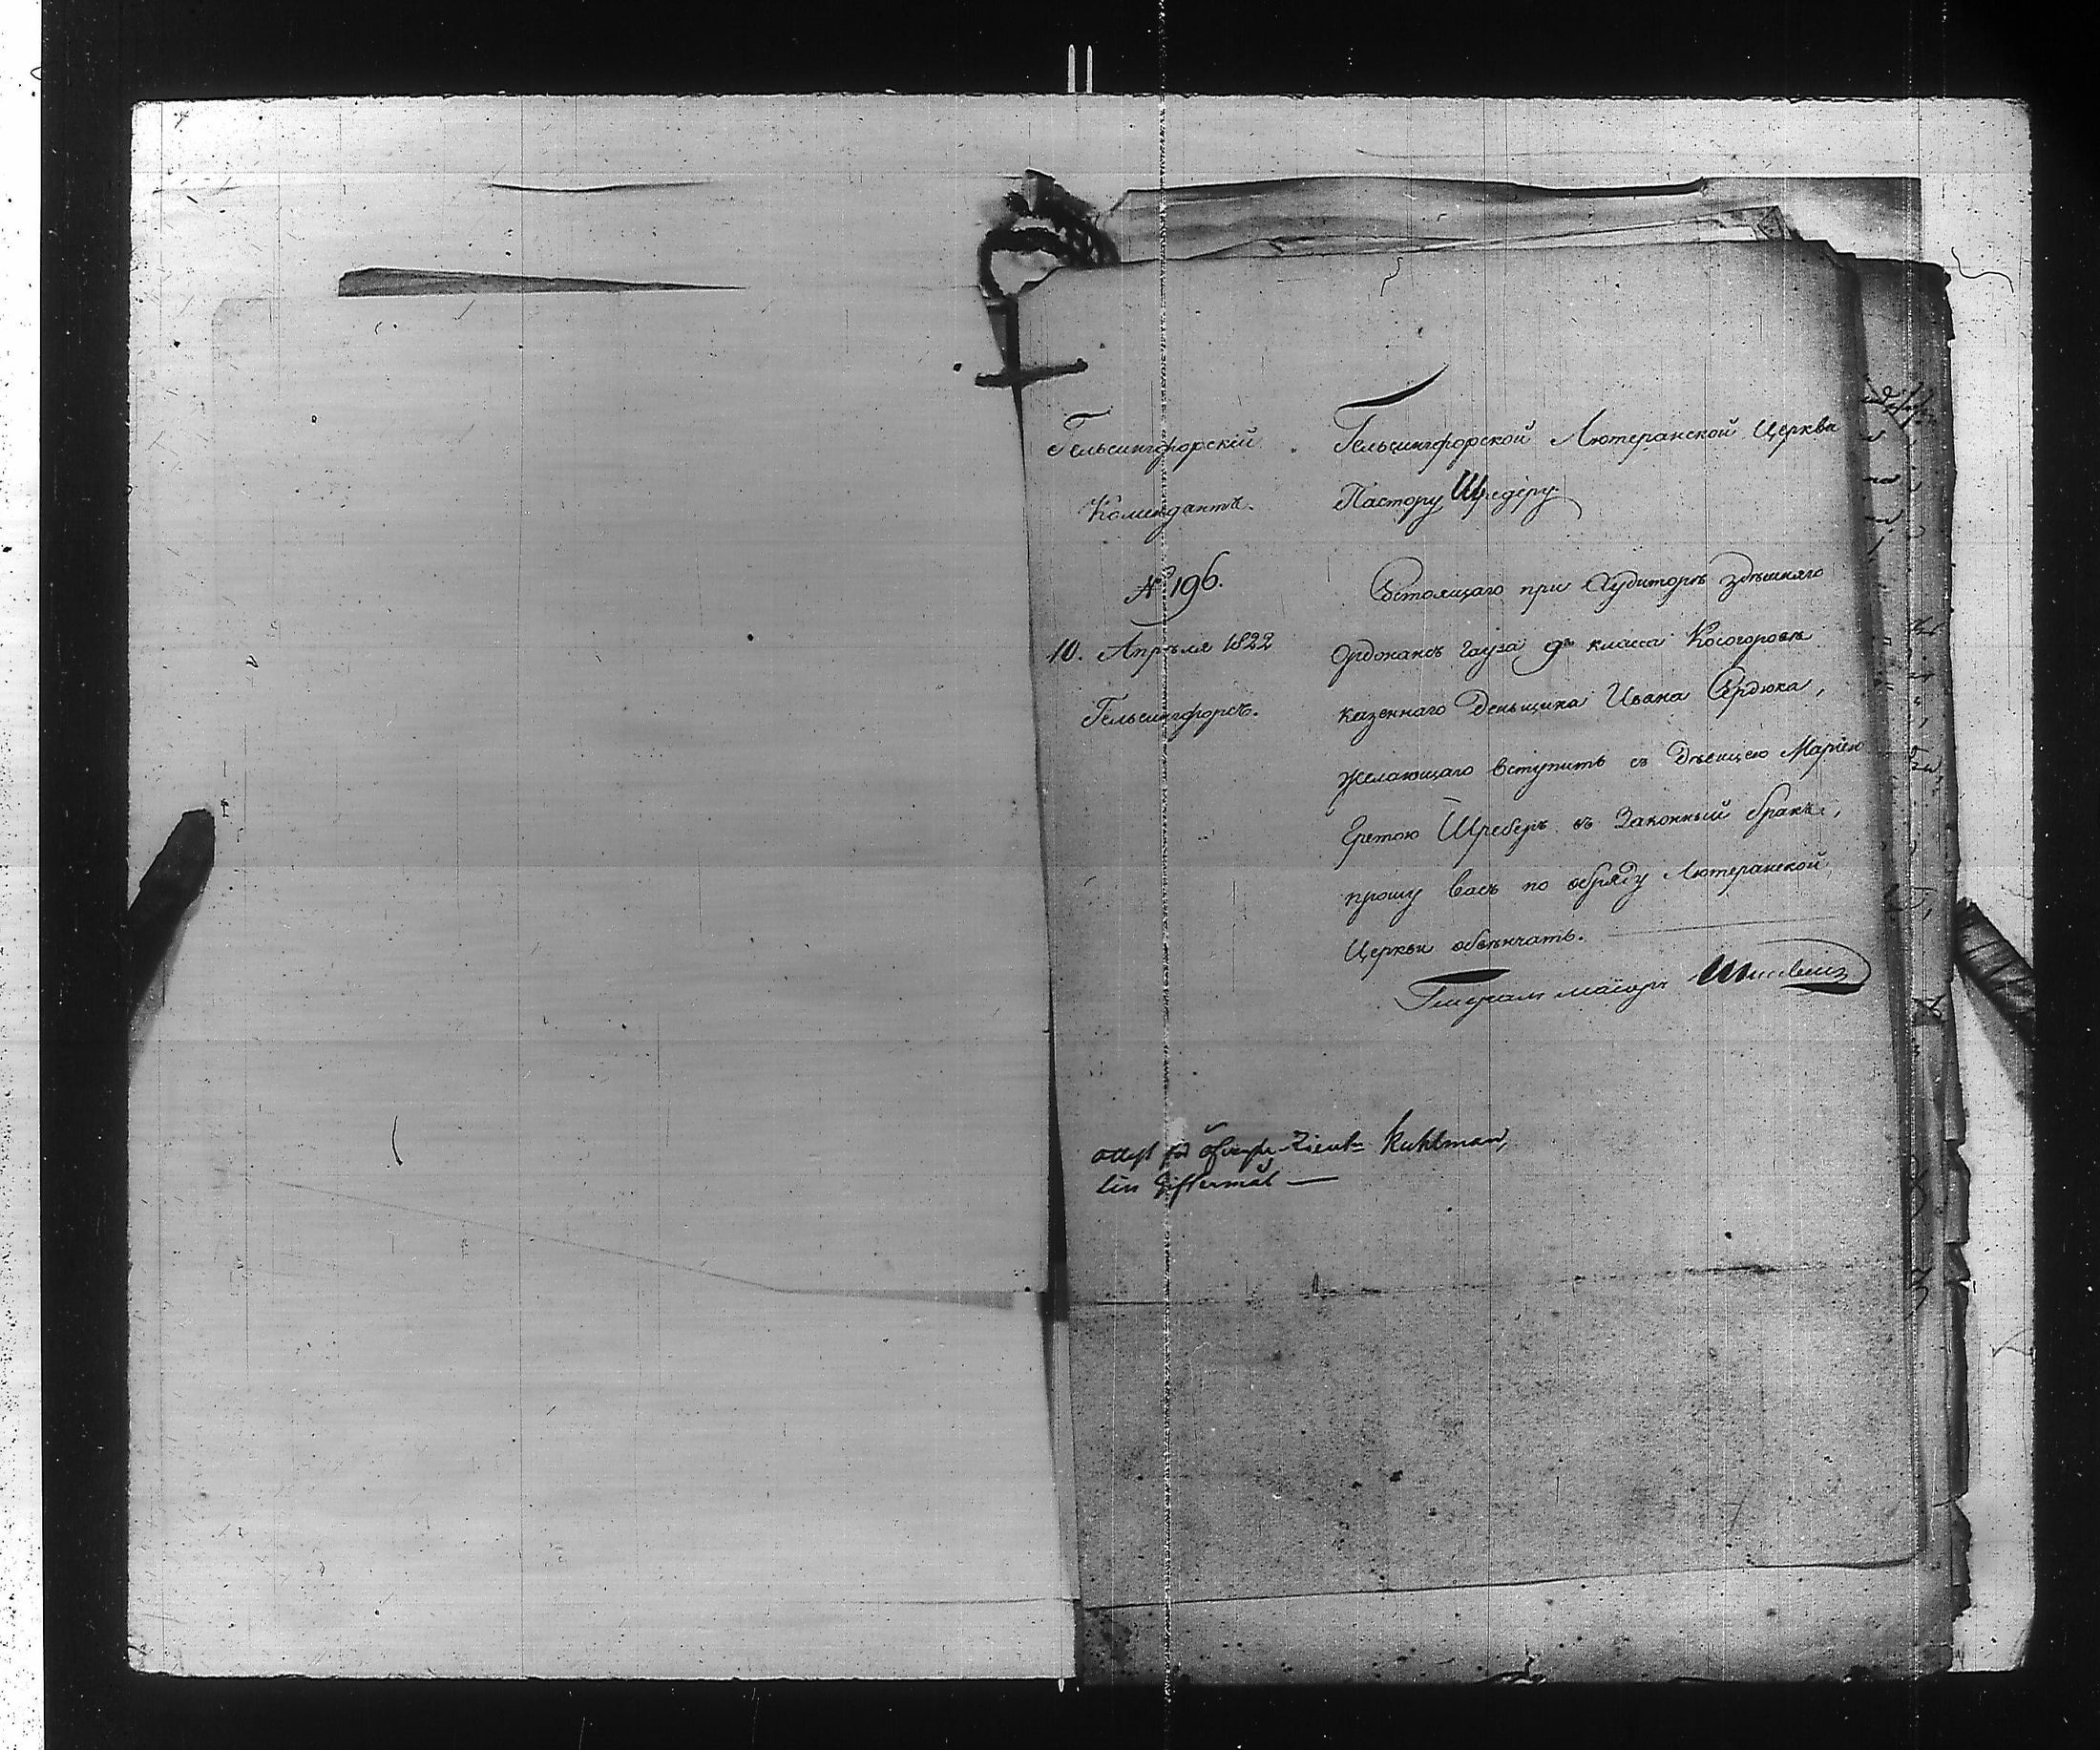 Гельсингфорскій
Комендантъ.
№ 196.
10. Апрѣля 1822
Гельсингфорсъ.
Гельсингфорской Лютеранской Церкви
Пастору Шредеру
Состоящаго при Аудиторѣ здѣшняго
Ордонансъ Гауза 9го класса Косогоровѣ
казеннаго деньщика Ивана Сердюка,
желающаго вступить съ Дѣвицею Маріею
Гретою Шреберъ въ Законный бракъ,
прошу васъ по обряду Лютеранской
Церкви обвѣнчать.
Генералъ маіоръ
attest för Kuhlman,
till Giftermål —